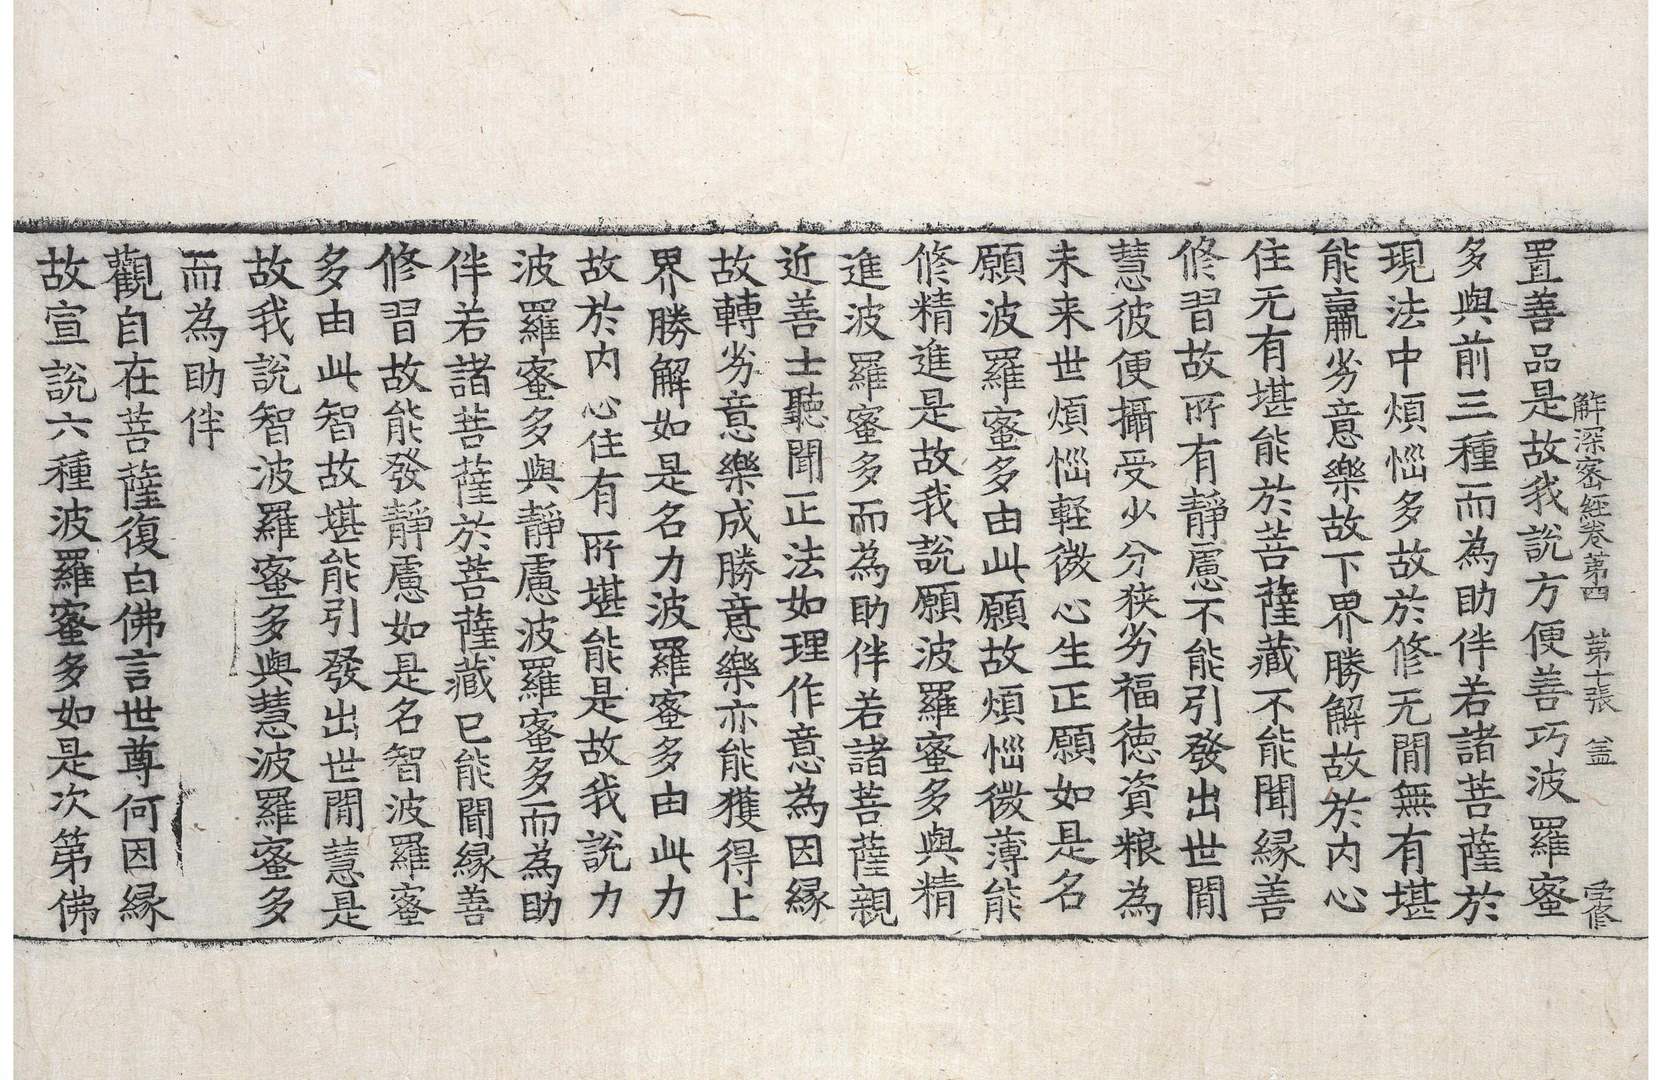 解深密經卷第四　第十張　盖　受修
置善品是故我說方便善巧波羅蜜
多與前三種而為助伴若諸菩薩於
現法中煩惱多故於修无間無有堪
能羸劣意樂故下界勝解故於内心
住无有堪能於菩薩藏不能聞緣善
修習故所有靜慮不能引發出世間
慧彼便攝受少分狹劣福德資粮為
未来世煩惱輕微心生正願如是名
願波羅蜜多由此願故煩惱微薄能
修精進是故我說願波羅蜜多與精
進波羅蜜多而為助伴若諸菩薩親
近善士聽聞正法如理作意為因緣
故轉劣意樂成勝意樂亦能獲得上
界勝解如是名力波羅蜜多由此力
故於内心住有所堪能是故我說力
波羅蜜多與靜慮波羅蜜多而為助
伴若諸菩薩於菩薩藏已能聞緣善
修習故能發靜慮如是名智波羅蜜
多由此智故堪能引發出世間慧是
故我說智波羅蜜多與慧波羅蜜多
而為助伴
觀自在菩薩復白佛言世尊何因緣
故宣說六種波羅蜜多如是次第佛